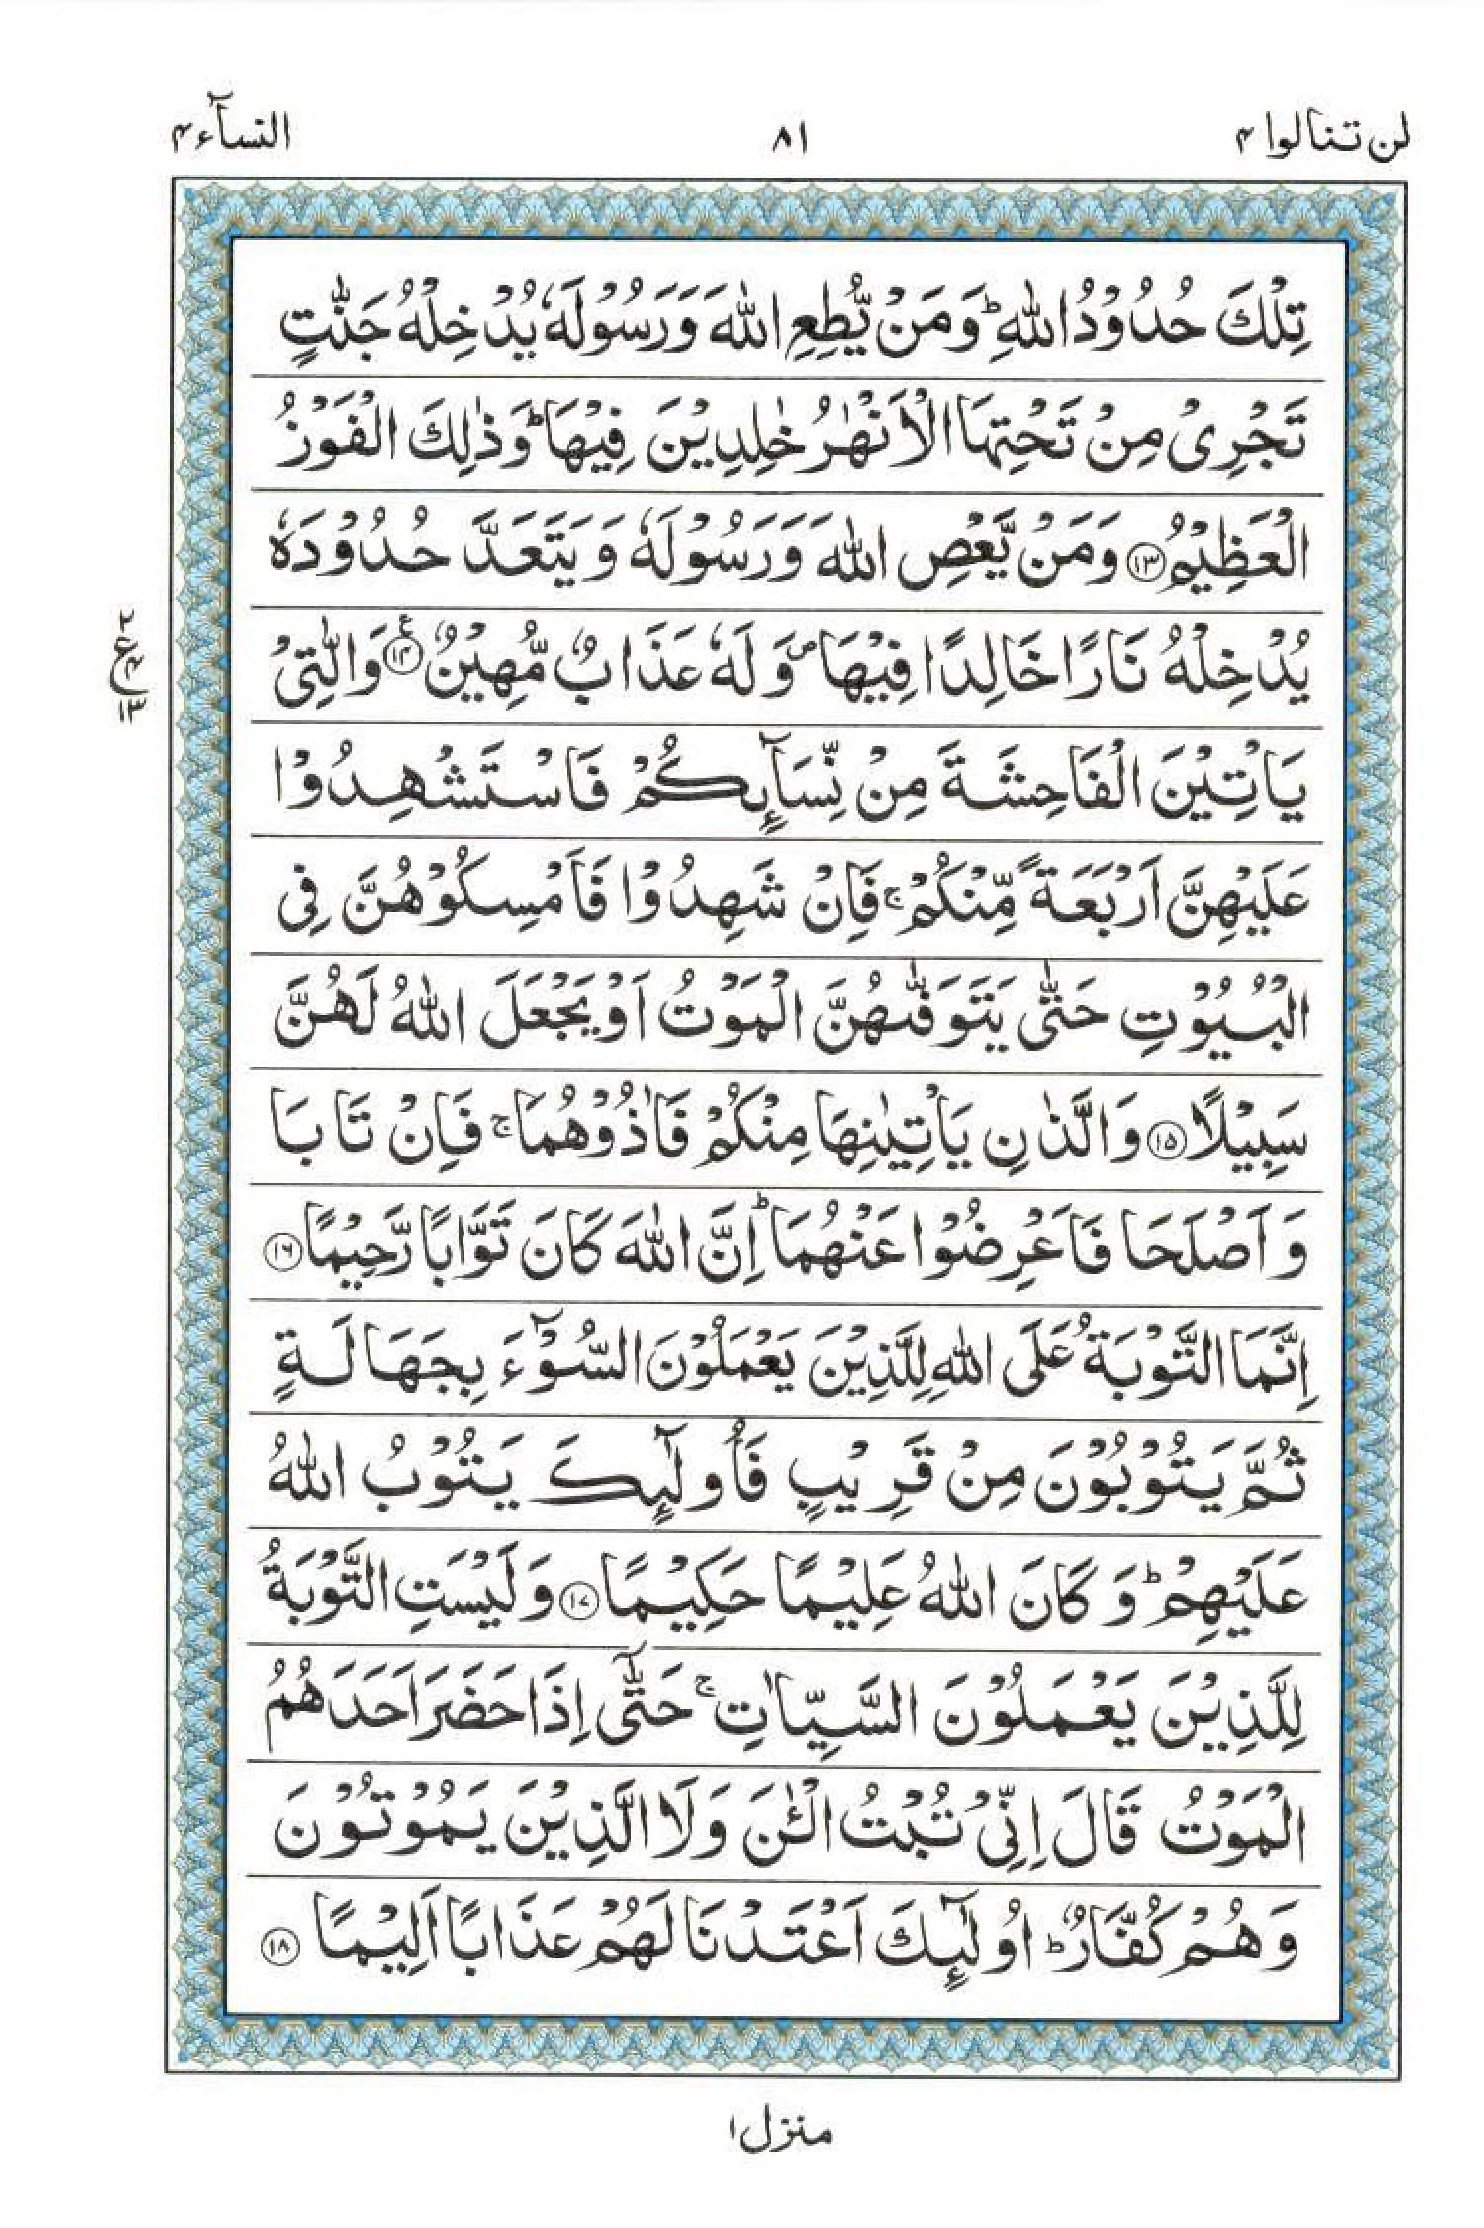 لن تنالوا ٤
٨١
النسآء ٤
تِلْكَ حُدُوْدُ اللّٰهِ ؕ وَمَنْ يُّطِعِ اللّٰهَ وَرَسُوْلَهٗ يُدْخِلْهُ جَنّٰتٍ
تَجْرِىْ مِنْ تَحْتِهَا الْاَنْهٰرُ خٰلِدِيْنَ فِيْهَا ؕ وَذٰلِكَ الْفَوْزُ
الْعَظِيْمُ ﴿١٣﴾ وَمَنْ يَّعْصِ اللّٰهَ وَرَسُوْلَهٗ وَيَتَعَدَّ حُدُوْدَهٗ
يُدْخِلْهُ نَارًا خَالِدًا فِيْهَا ۪ وَلَهٗ عَذَابٌ مُّهِيْنٌ ﴿١٤﴾ۧ وَالّٰتِىْ
يَاْتِيْنَ الْفَاحِشَةَ مِنْ نِّسَآئِكُمْ فَاسْتَشْهِدُوْا
عَلَيْهِنَّ اَرْبَعَةً مِّنْكُمْ ۚ فَاِنْ شَهِدُوْا فَاَمْسِكُوْهُنَّ فِى
الْبُيُوْتِ حَتّٰى يَتَوَفّٰٮهُنَّ الْمَوْتُ اَوْ يَجْعَلَ اللّٰهُ لَهُنَّ
سَبِيْلًا ﴿١٥﴾ وَالَّذٰنِ يَاْتِيٰنِهَا مِنْكُمْ فَاٰذُوْهُمَا ۚ فَاِنْ تَابَا
وَاَصْلَحَا فَاَعْرِضُوْا عَنْهُمَا ؕ اِنَّ اللّٰهَ كَانَ تَوَّابًا رَّحِيْمًا ﴿١٦﴾
اِنَّمَا التَّوْبَةُ عَلَى اللّٰهِ لِلَّذِيْنَ يَعْمَلُوْنَ السُّوْٓءَ بِجَهَالَةٍ
ثُمَّ يَتُوْبُوْنَ مِنْ قَرِيْبٍ فَاُولٰٓئِكَ يَتُوْبُ اللّٰهُ
عَلَيْهِمْ ؕ وَكَانَ اللّٰهُ عَلِيْمًا حَكِيْمًا ﴿١٧﴾ وَلَيْسَتِ التَّوْبَةُ
لِلَّذِيْنَ يَعْمَلُوْنَ السَّيِّاٰتِ ۚ حَتّٰٓى اِذَا حَضَرَ اَحَدَهُمُ
الْمَوْتُ قَالَ اِنِّىْ تُبْتُ الْـٰٔنَ وَلَا الَّذِيْنَ يَمُوْتُوْنَ
وَهُمْ كُفَّارٌ ؕ اُولٰٓئِكَ اَعْتَدْنَا لَهُمْ عَذَابًا اَلِيْمًا ﴿١٨﴾
٢
ع ٤
١٣
منزل ١